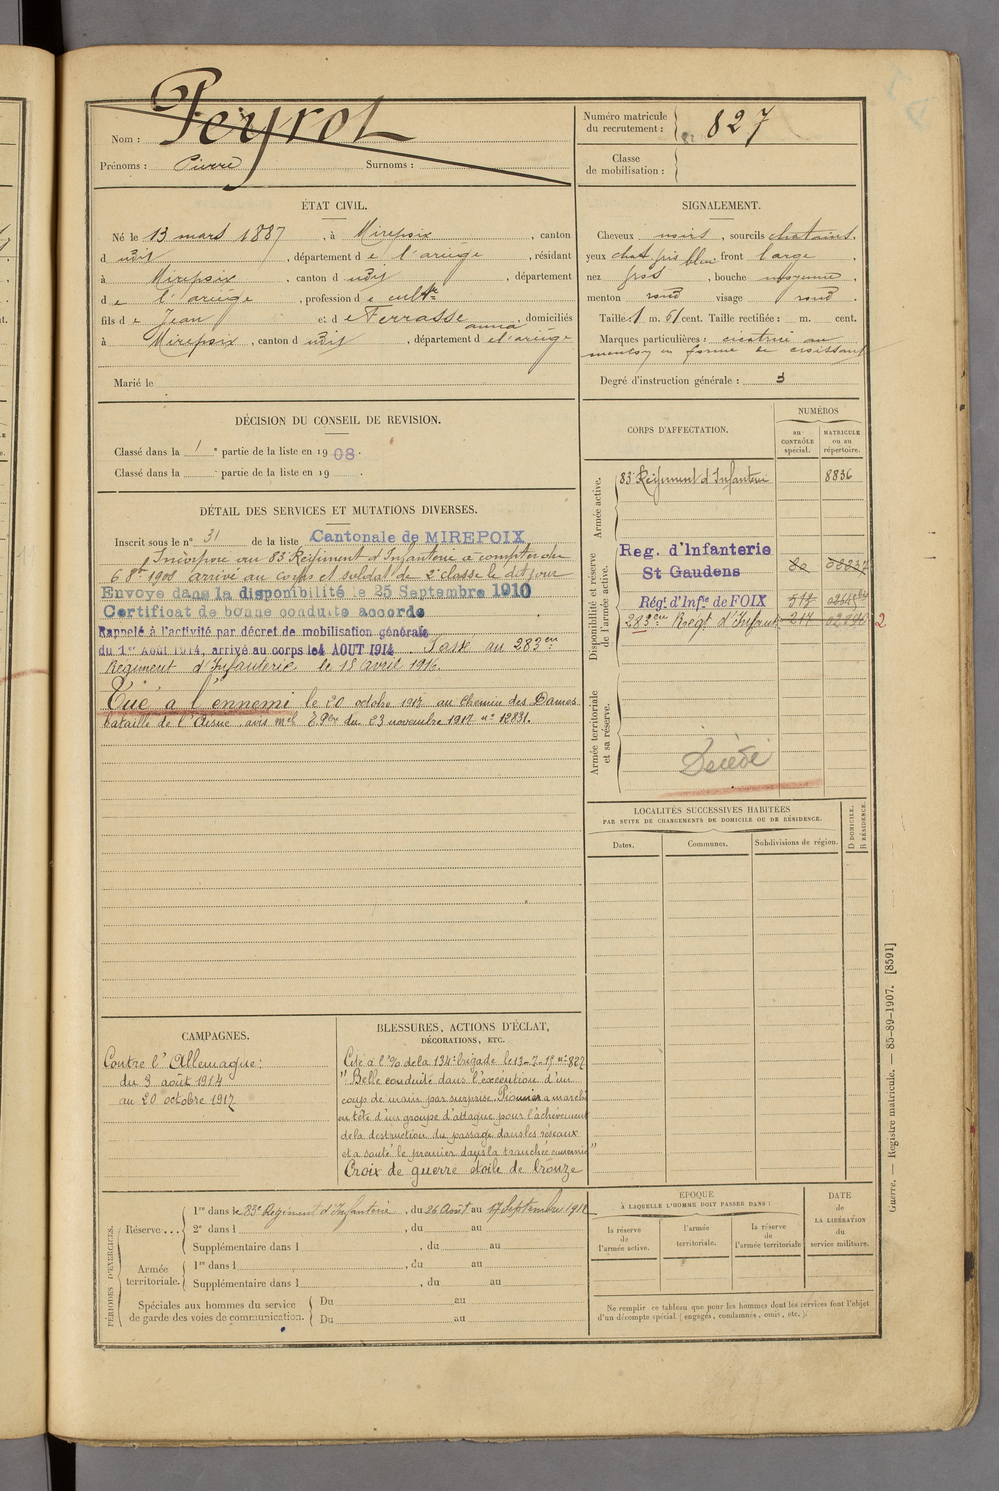 Peyrot
Nom :
Prénoms : Pierre Surnoms :
Numéro matricule
du recrutement : 827
Classe
de mobilisation :
ÉTAT CIVIL.
Né le 13 mars 1887, à Mirepoix, canton
d udit, département de l'ariège, résidant
à Mirepoix, canton d udit, département
de l'ariège, profession de cultr
fils de Jean et de Terrasse anna, domiciliés
à Mirepoix, canton d udit, département de l'ariège
Marié le
SIGNALEMENT.
Cheveux noirs, sourcils chatains,
yeux chat. gris bleu, front large,
nez gros, bouche moyenne,
menton rond visage rond.
Taille 1 m. 61 cent. Taille rectifiée : m. cent.
Marques particulières : cicatrice au
menton en forme de croissant
Degré d'instruction générale : 3
DÉCISION DU CONSEIL DE REVISION.
Classé dans la 1e partie de la liste en 1908.
Classé dans la partie de la liste en 19
DÉTAIL DES SERVICES ET MUTATIONS DIVERSES.
Inscrit sous le n° 31 de la liste Cantonale de MIREPOIX
Incorporé au 83 Régiment d'Infanterie à compter du
6 8bre 1908 arrivé au corps et soldat de 2e classe le dit jour
Envoyé dans la disponibilité le 25 Septembre 1910
Certificat de bonne conduite accordé
Rappelé à l'activité par décret de mobilisation générale
du 1er Août 1914, arrivé au corps le 4 AOUT 1914. Passé au 283em
Régiment d'Infanterie le 18 avril 1916.
Tué à l'ennemi le 20 octobre 1917 au Chemin des Dames
bataille de l'Aisne, avis mel du 23 novembre 1917 n° 12831.
CORPS D'AFFECTATION.
NUMÉROS
au
CONTRÔLE
spécial.
MATRICULE
ou au
répertoire.
Armée active.
83e Régiment d'Infanterie 8836
Disponibilité et réserve
de l'armée active.
Reg. d'Infanterie
St Gaudens
Régt d'Infie de FOIX
283em Régt d'Infant 217 2
Armée territoriale
et sa réserve.
Décédé
LOCALITÉS SUCCESSIVES HABITÉES
PAR SUITE DE CHANGEMENTS DE DOMICILE OU DE RÉSIDENCE.
Dates. Communes. Subdivisions de région.
D DOMICILE.
R RÉSIDENCE.
CAMPAGNES.
Contre l'Allemagne :
du 3 août 1914
au 20 octobre 1917
BLESSURES, ACTIONS D'ÉCLAT,
DÉCORATIONS, ETC.
Cité à l'% de la 134e brigade le 13-7-17 n° 827
"Belle conduite dans l'exécution d'un
coup de main par surprise. Pionnier a marché
en tête d'un groupe d'attaque pour l'achèvement
de la destruction du passage dans les réseaux
et a sauté le premier dans la tranchée ennemie"
Croix de guerre étoile de bronze
PÉRIODES D'EXERCICES.
Réserve...
1re dans le 83e Régiment d'Infanterie, du 26 Août au 17 Septembre 1912
2e dans l , du au
Supplémentaire dans l , du au
Armée
territoriale.
1re dans l , du au
Supplémentaire dans l , du au
Spéciales aux hommes du service
de garde des voies de communication.
Du au
Du au
EPOQUE
À LAQUELLE L'HOMME DOIT PASSER DANS :
la réserve
de
l'armée active.
l'armée
territoriale.
la réserve
de
l'armée territoriale
DATE
de
LA LIBÉRATION
du
service militaire.
Ne remplir ce tableau que pour les hommes dont les services font l'objet
d'un décompte spécial (engagés, condamnés, omis, etc.).
Guerre. — Registre matricule. — 85-89-1907. [8591]